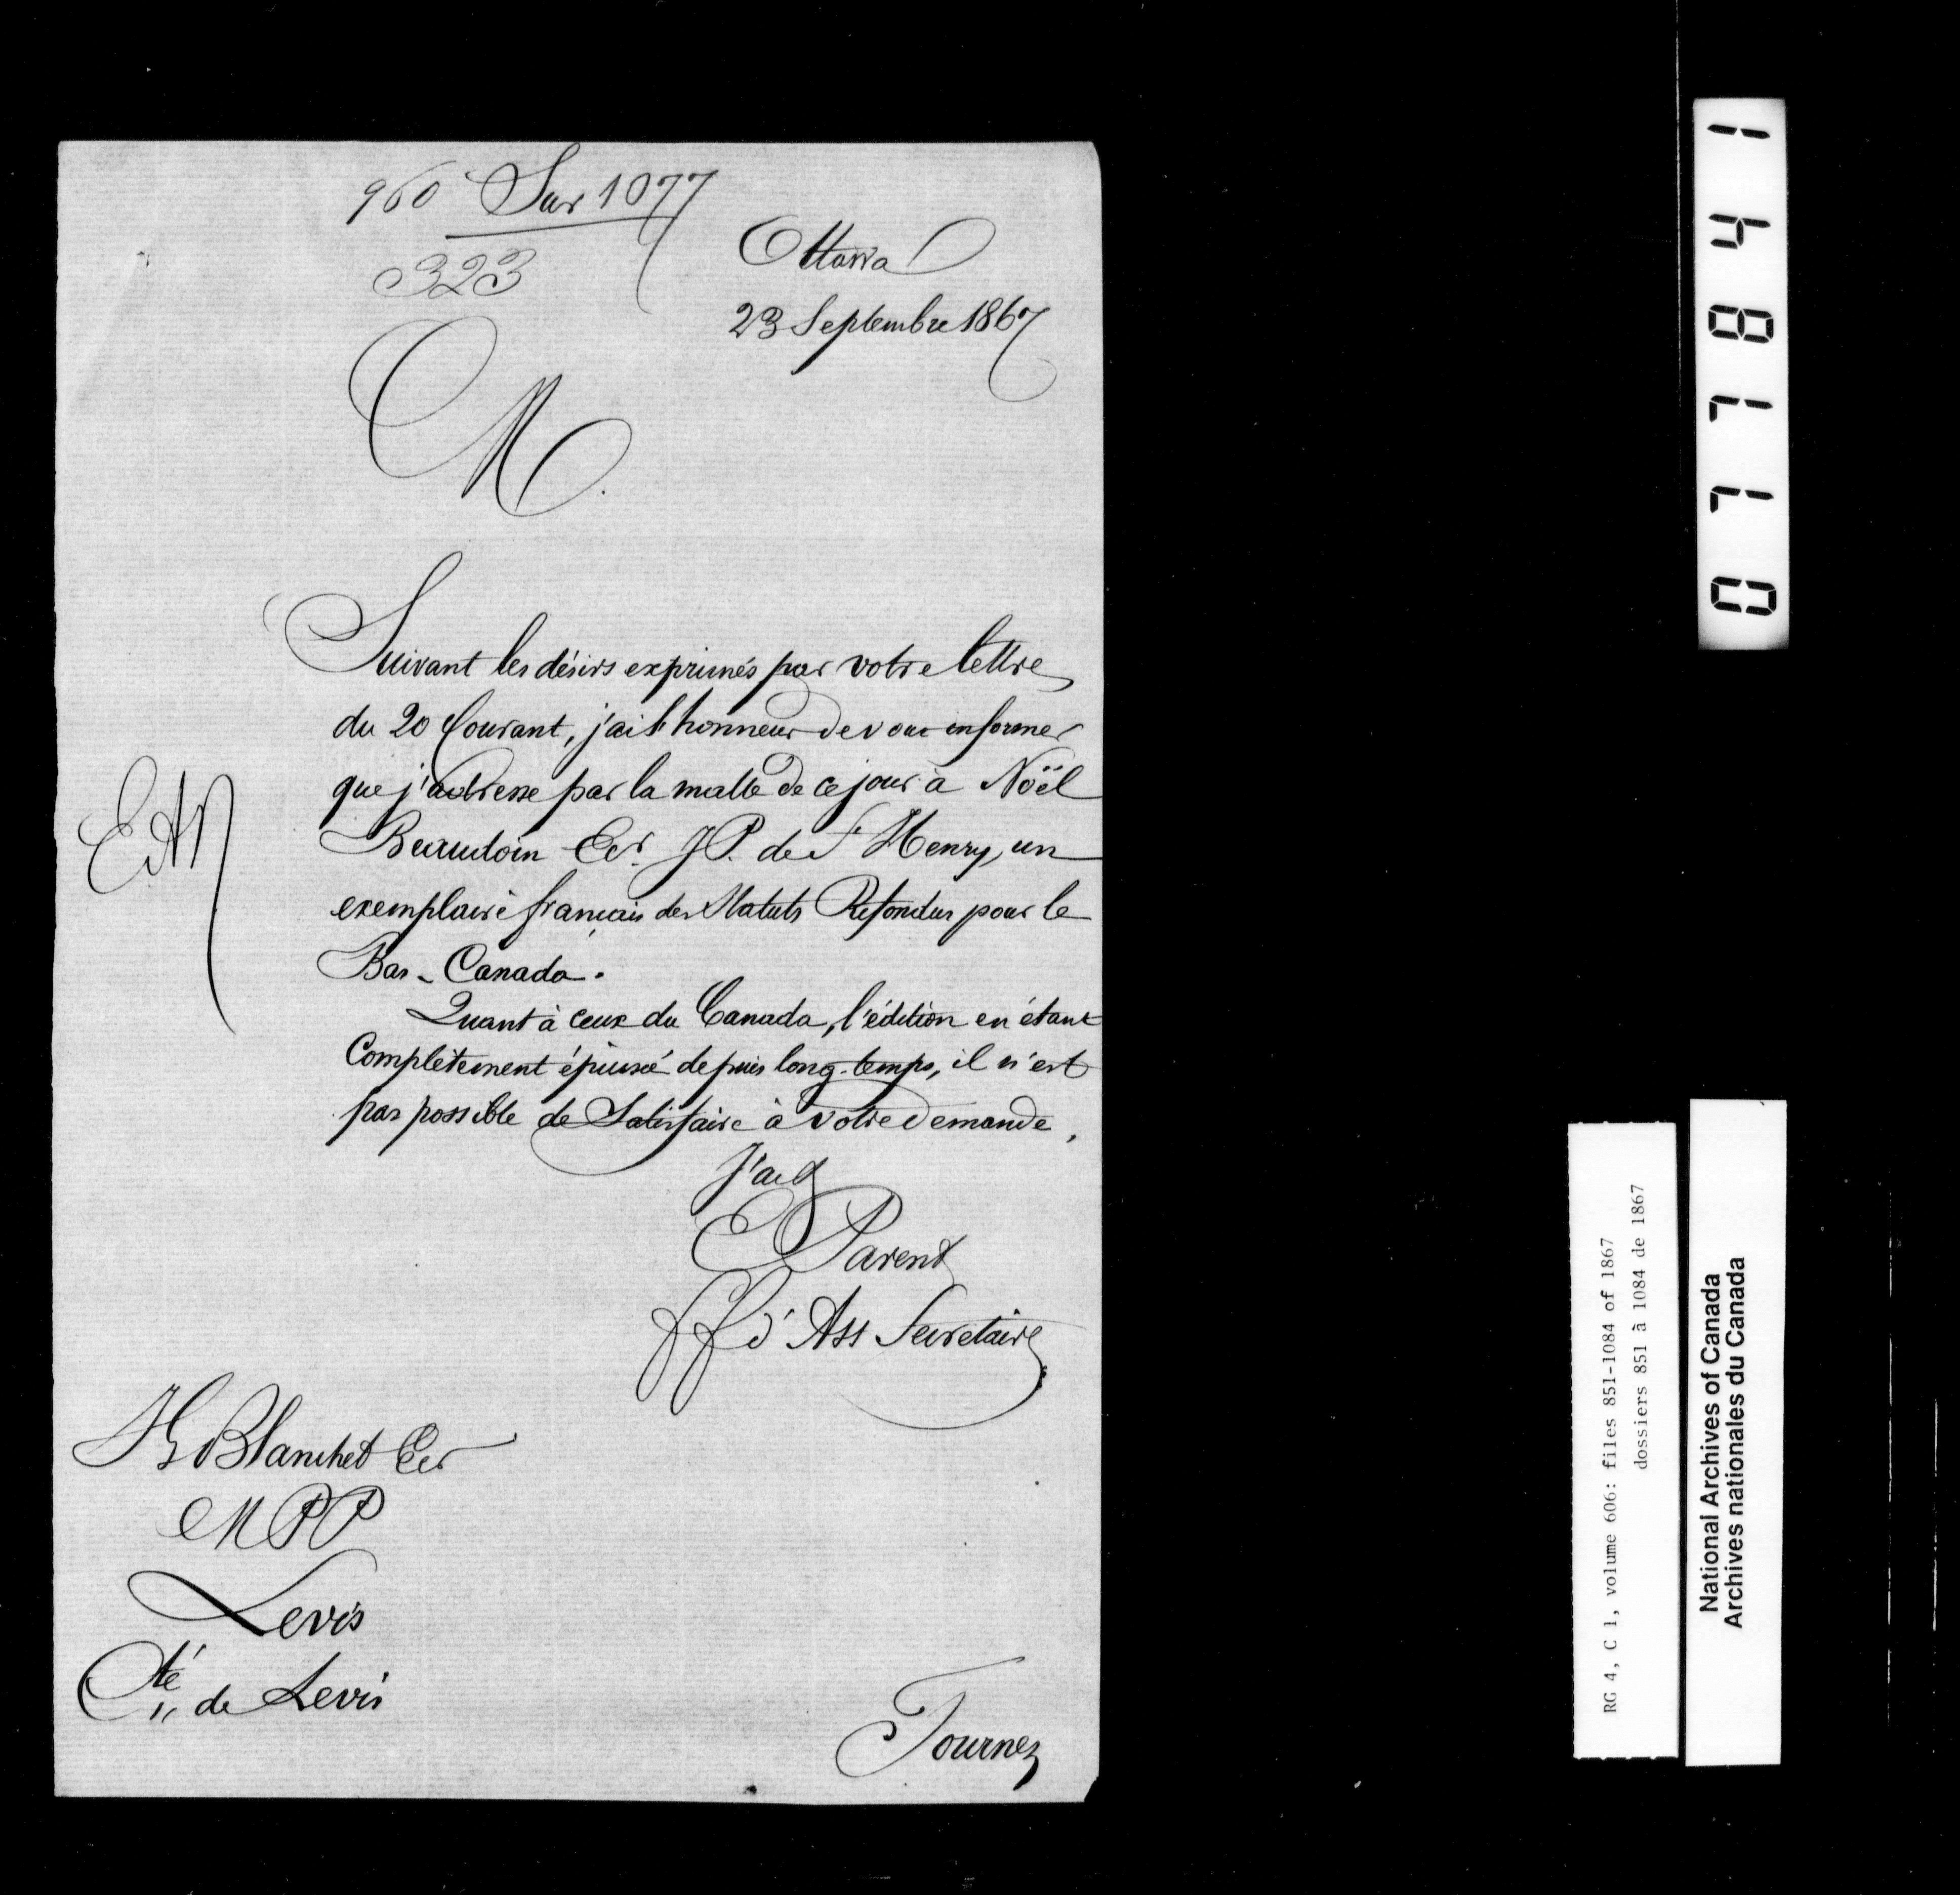 960 Sur 1077
323
Ottawa
23 Septembre 1867
M.
Suivant les désirs exprimés par votre lettre
du 20 Courant, j'ai l'honneur de vous informer
que j'adresse par la malle de ce jour à Noël
Beaudoin Ecr. J.P. de St Henry, un
exemplaire français des Statuts Refondus pour le
Bas-Canada.
Quant à ceux du Canada, l'édition en étant
Complètement épuisée depuis long-temps, il n'est
pas possible de Satisfaire à votre demande,
J'ai &
E Parent
ff d'Ass Secretaire
Blanchet Ecr
MPP
Levis
Cté de Levis
Tournez
077841
RG 4, C 1, volume 606: files 851-1084 of 1867
dossiers 851 à 1084 de 1867
National Archives of Canada
Archives nationales du Canada